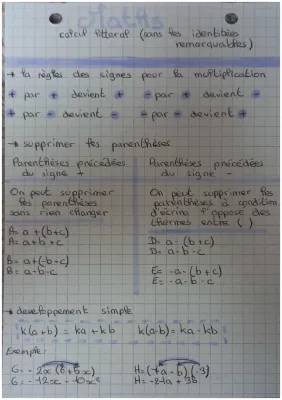 Maths
calcul littéral (sans les identités
remarquables)
→ la règles des signes pour la multiplication
+ par + devient + - par + devient -
+ par - devient - - par - devient +
→ supprimer les parenthèses
Parenthèses précédées
du signe +
Parenthèses précédées
du signe -
On peut supprimer
les parenthèses
sans rien changer
On peut supprimer les
parenthèses à condition
d'écrire l'opposé des
thermes entre ( )
A = a + (b+c)
A = a+b+c
B = a+(-b-c)
B = a-b-c
D = a - (b+c)
D = a-b-c
E = -a-(b+c)
E = -a-b-c
→ developpement simple
k(a+b) = ka + kb k(a-b) = ka - kb
Exemple:
G = -2x(6+5x)
G = -12x - 10x²
H = (-7a-b)(-3)